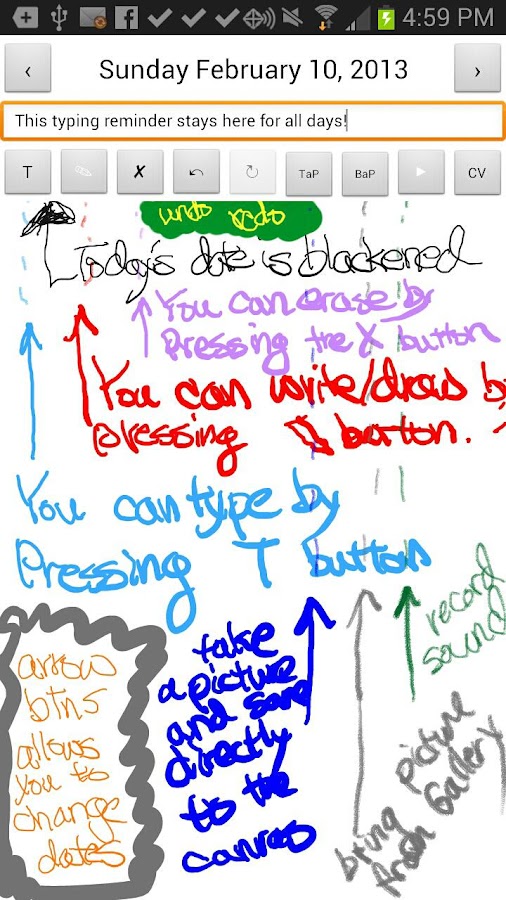 4:59 PM
‹ Sunday February 10, 2013 ›
This typing reminder stays here for all days!
T X TaP BaP CV
undo redo
Today's date is blackened
You can erase by
Pressing the X button
You can write/draw by
pressing button.
You can type by
Pressing T button
record
sound
take
a picture
and save
directly
to the
canvas
arrow
btns
allows
you to
change
dates
bring picture
from Gallery